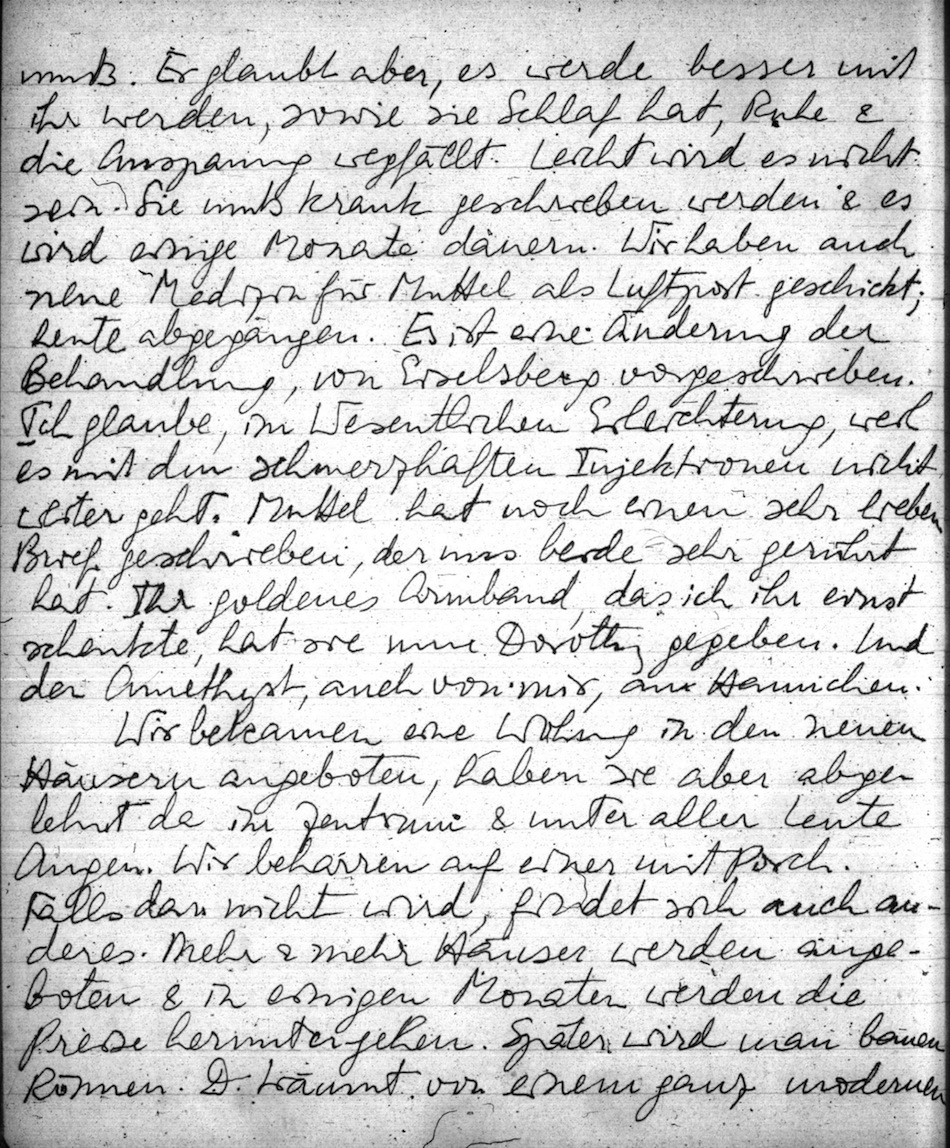 muß. Er glaubt aber, es werde besser mit
ihr werden, sowie sie Schlaf hat, Ruhe &
die Anspannung wegfällt. Leicht wird es nicht
sein. Sie muß krank geschrieben werden & es
wird einige Monate dauern. Wir haben auch
neue Medizin für Muttel als Luftpost geschickt,
heute abgegangen. Es ist eine Änderung der
Behandlung, von Eiselsberg vorgeschrieben.
Ich glaube, im Wesentlichen Erleichterung, weil
es mit den schmerzhaften Injektionen nicht
weiter geht. Muttel hat noch einen sehr lieben
Brief geschrieben, der uns beide sehr gerührt
hat. Ihr goldenes Armband, das ich ihr einst
schenkte, hat sie nun Dorothy gegeben. Und
der Amethyst, auch von mir, an Hannichen.
Wir bekamen eine Wohng in den neuen
Häusern angeboten, haben sie aber abge-
lehnt da im Zentrum & unter aller Leute
Augen. Wir beharren auf einer mit Porch.
Falls daru nicht wird, findet sich auch an-
deres. Mehr & mehr Häuser werden ange-
boten & in einigen Monaten werden die
Preise heruntergehen. Später wird man bauen
können. D. träumt von einem ganz modernen